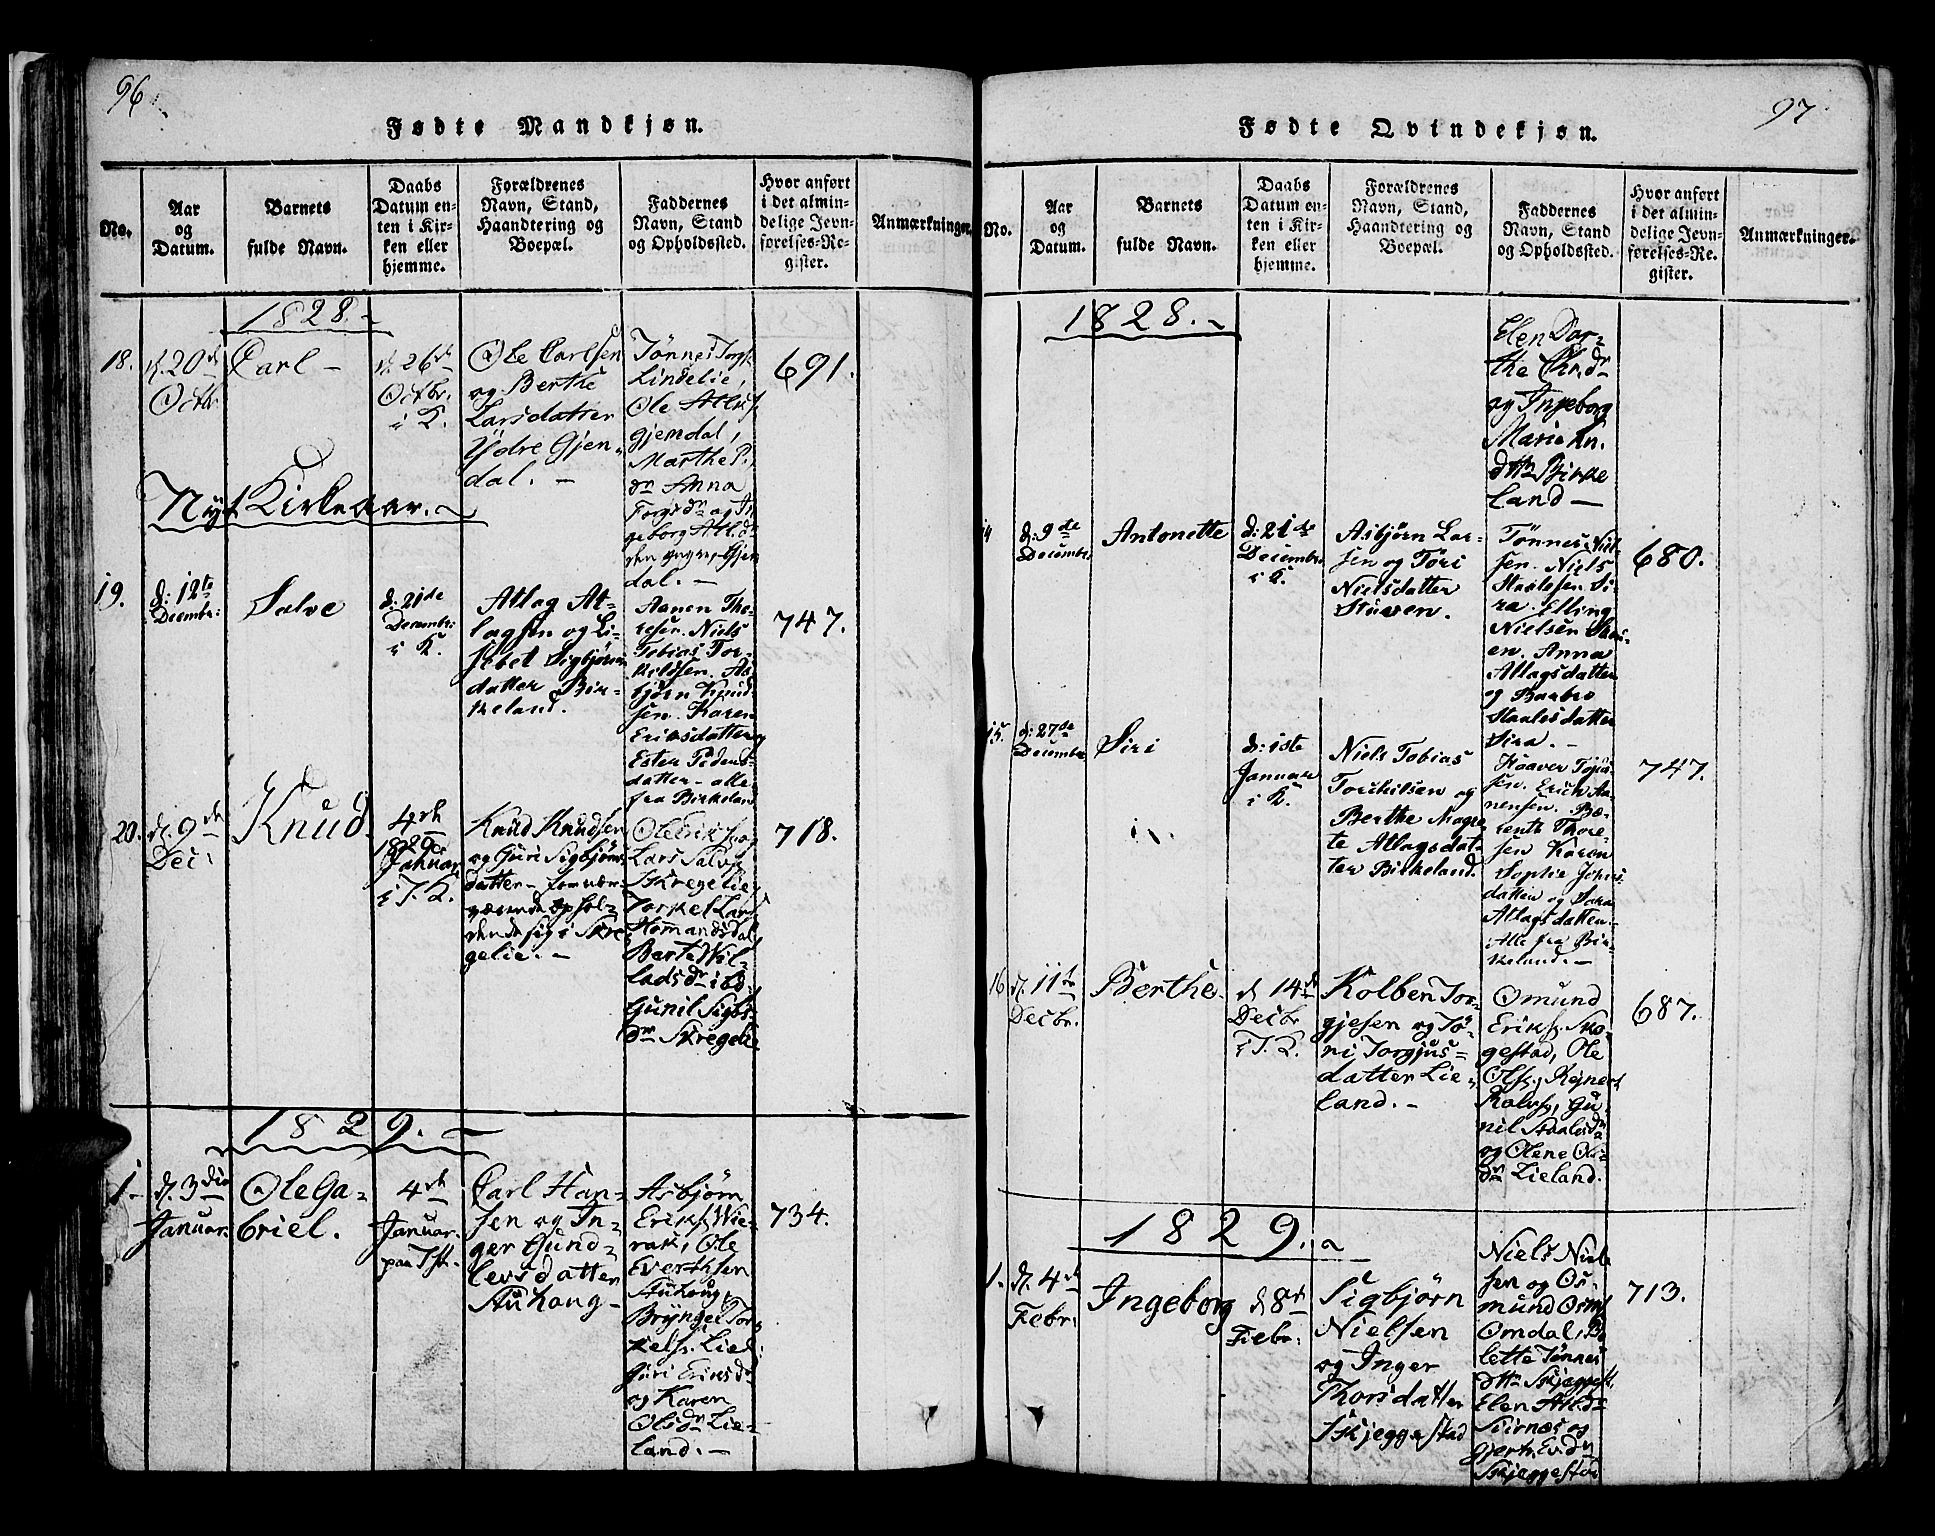 96
Fødte Mandkjøn.
No.
Aar
og
Datum.
Barnets
fulde Navn.
Daabs
Datum en-
ten i Kir-
ken eller
hjemme.
Forældrenes
Navn, Stand,
Haandtering og
Boepæl.
Faddernes
Navn, Stand
og Opholdssted.
Hvor anført
i det almin-
delige Jevn-
førelses-Re-
gister.
Anmærkninger.
1828.
18.
d. 20de
Octbr.
Carl
d. 26de
Octbr.
i K.
Ole Carlsen
og Berthe
Larsdatter
Ydre Gjen-
dal.
Tønnes
Lindelie,
Ole
Gjemdal,
Marthe
Anna
dal.
691.
Nyt Kirkeaar.
19.
d: 12te
Decembr:
Salve
d: 21de
Decembr:
i K.
Atlag At-
lagsen og Li-
sebet Sigbjørns
datter Bir-
keland.
Aanen Tho-
resen. Niels
Tobias Tor-
kildsen. As-
bjørn Knud
sen. Karen
Eriksdatter og
Ester Peders
datter - alle
fra Birkeland
747.
20.
d. 9de
Dec:
Knud
4de
1829
Januar
i K.
Knud Knudsen
og Guri Sigbjørns
datter
sig i Skre
gelie.
Ole
Lars Salv
Skregelie
Torkel Lars
Homandsdal
Berte Wil-
lads dr
Gunil Sigbs
dr Skregelie
718.
1829.
1
d. 3die
Januar:
Ole Ga-
briel.
4de
Januar.
paa
Carl Han-
sen og In-
ger Gund-
levsdatter
Stuhoug
Asbjørn
Eriks. Wie-
rak, Ole
Evertsen
Stuhoug,
Brynge Tor
kels. Liel.
Guri Eriks dr
og Karen
Ols dr Lie-
land.
734.
97
Fødte Qvindekjøn.
No.
Aar
og
Datum.
Barnets
fulde Navn.
Daabs
Datum en-
ten i Kir-
ken eller
hjemme.
Forældrenes
Navn, Stand,
Haandtering og
Boepæl.
Faddernes
Navn, Stand
og Opholdssted.
Hvor anført
i det almin-
delige Jevn-
førelses-Re-
gister.
Anmærkninger.
1828.
Elen Dor-
the Chr. dr
og Ingeborg
Marie An.
dttr Birke
land
d: 9de
Decembr.
Antonette
d: 21de
Decembr:
i K.
Asbjørn Lar-
sen og Tori
Nielsdatter
Stueen.
Tønnes Niel-
sen. Niels
Staalesen Si-
ra. Elling
Nielsen Stu-
en. Anna
Atlagsdatter
og Barbro
Staalesdatter
Sira.
680.
15.
d: 27de
Decembr.
Siri
d: 1ste
Januar
i K.
Niels Tobias
Torchilsen og
Berthe Magre
te Atlagsdat-
ter Birkeland.
Haaver Tobia
sen. Erich Aa-
nensen. Bæ-
rent Thore-
sen Karen
Sophie Johns
datter og Sara
Atlagsdatter.
Alle fra Bir-
keland.
747.
16
d. 11te
Decbr.
Berthe
d 14de
Decbr
i K.
Kolben Tor-
gjesen og To-
ni Torgjus-
datter Lie-
land.
Omund
Eriks. Sko-
gestad, Ole
Ols, Rejnert
Rolvs, Gu-
nil Staalesdr
og Olene Ols-
dr Lieland.
687.
1829.
1.
d. 4de
Febr:
Ingeborg
d 8de
Febr:
Sigbjørn
Nielsen
og Inger
Thorsdatter
Skjeggestad
Niels Niel
sen og Os-
mund Osm
Omdal, Bo
lette Tønnes
dttr Skjeggest.
Elen Atl.dr
Stirnæs og
Skjeggestad
713.